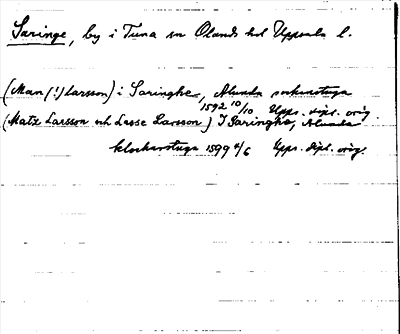 Saringe, by i Tuna sn Olands hd Uppsala l.
(Man (!) Larsson) i Saringhe, Alunda sochnstuga
1592 10/10 Upps. dipl. orig.
(Matz Larsson och Lasse Larsson) I Saringhe, Alunda
klockarstuga 1599 4/6 Upps. dipl. orig.